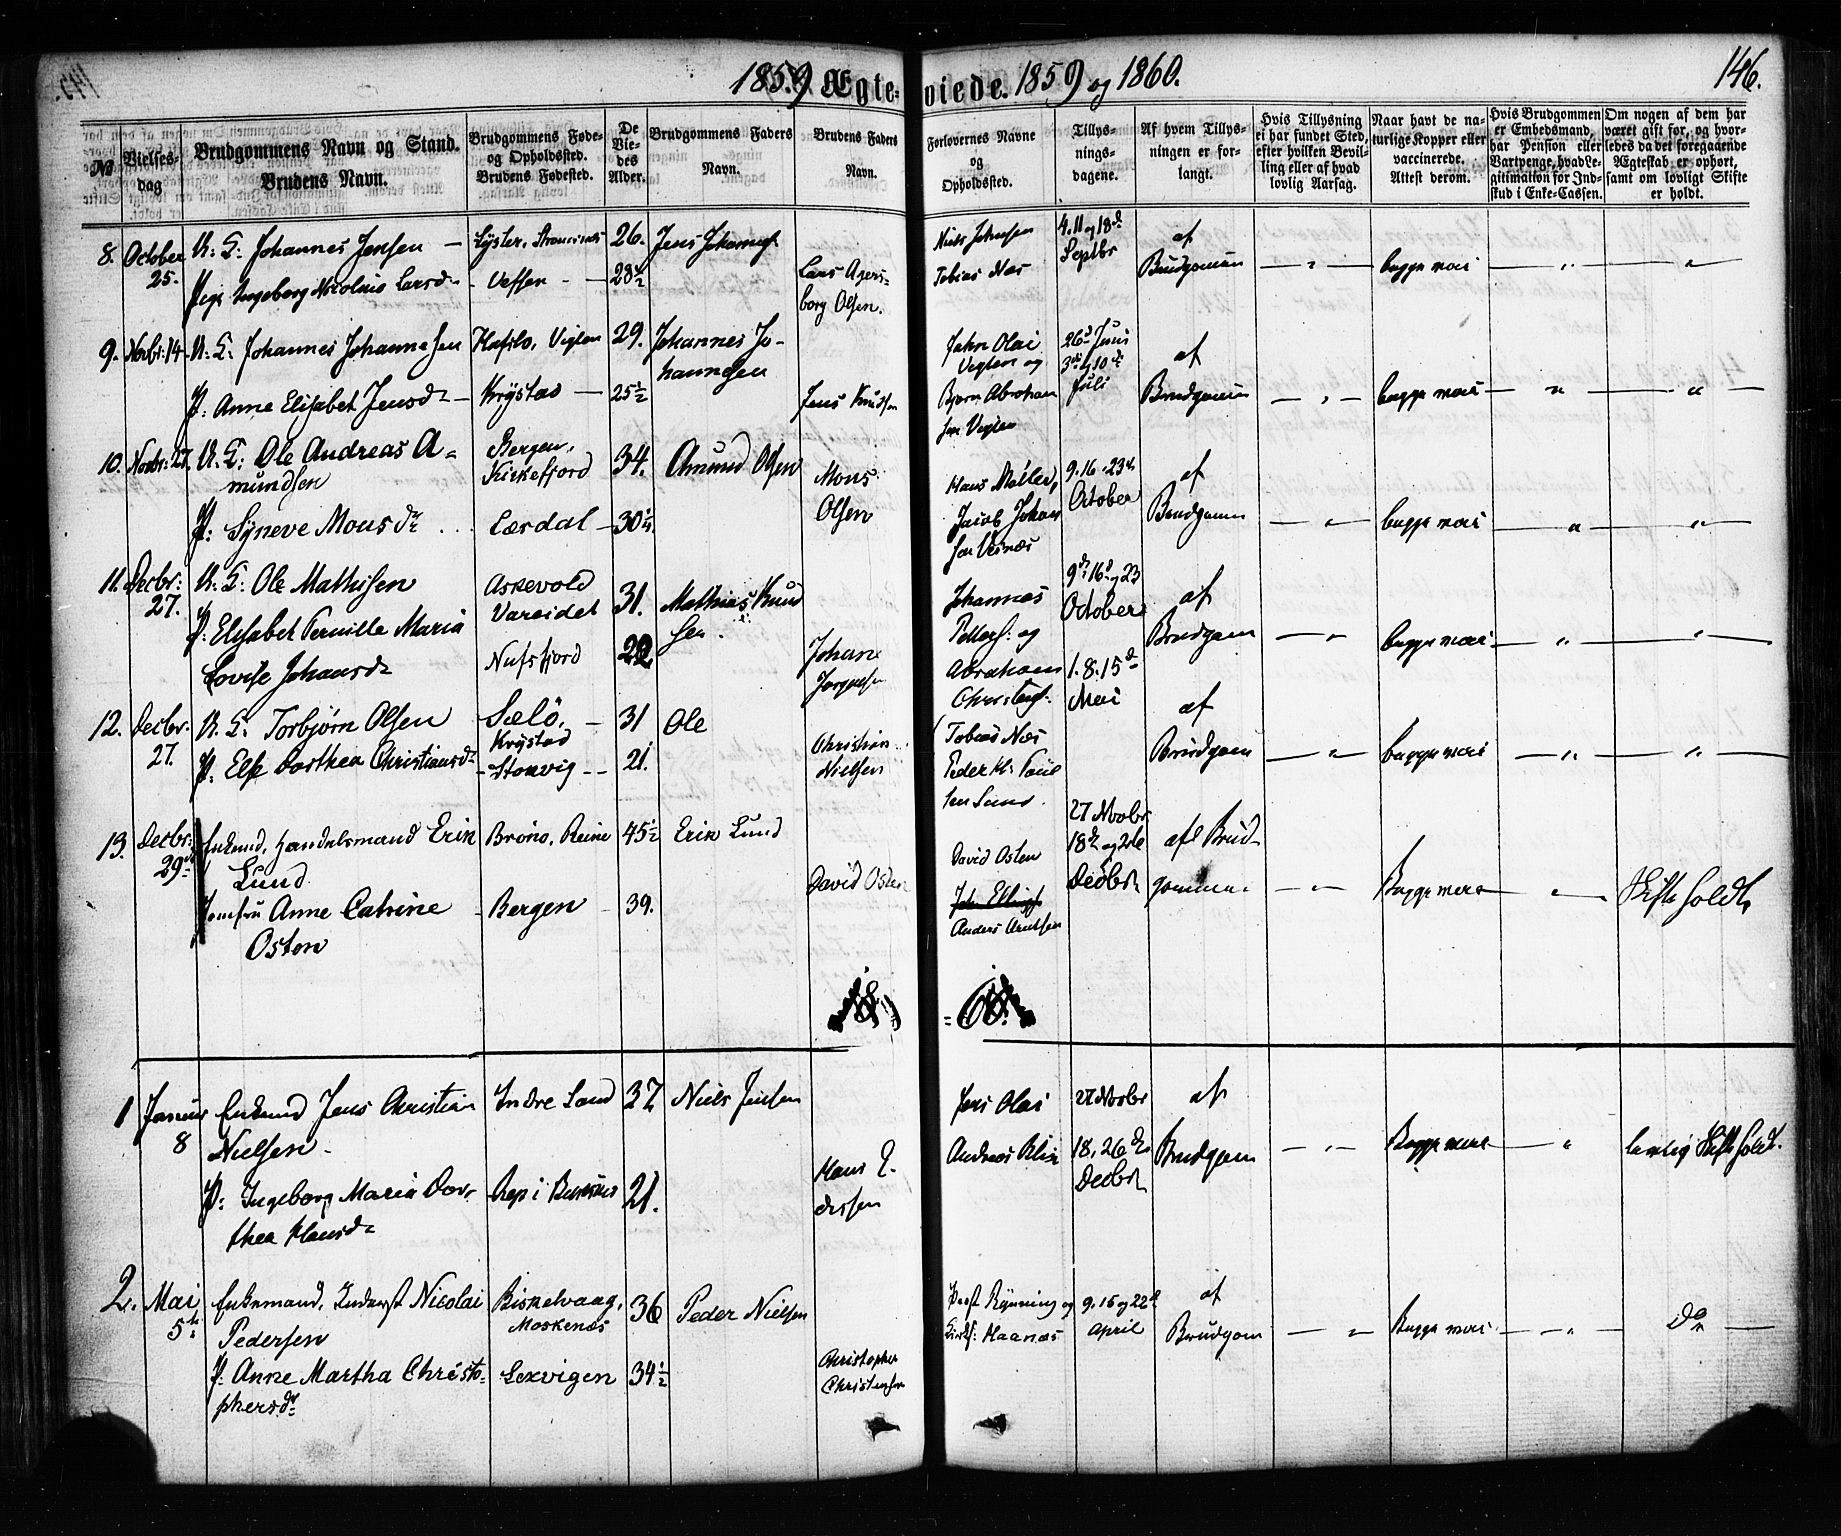 1859 Ægte= viede. 1859 og 1860. 146.
No
Vielses-
dag
Brudgommens Navn og Stand.
Brudens Navn.
Brudgommens Føde-
og Opholdssted.
Brudens Fødested.
De
Vie-
des
Alder.
Brudgommens Faders
Navn.
Brudens Faders
Navn.
Forlovernes Navne
og
Opholdssted.
Tillys-
nings-
dagene.
Af hvem Tillys-
ningen er for-
langt.
Hvis Tillysning
ei har fundet Sted,
efter hvilken Bevil-
ling eller af hvad
lovlig Aarsag.
Naar havt de na-
turlige Kopper eller
vaccinerede.
Attest derom.
Hvis Brudgommen
er Embedsmand,
har Pension eller
Vartpenge, hvad Le-
gitimation for Ind-
skud i Enke-Cassen.
Om nogen af dem har
været gift for, og hvor-
ledes da det foregaaende
Ægteskab er ophørt,
samt om lovligt Skifte
er holdt.
8. October 25.
U: C: Johannes Jensen —
Pige Ingeborg Nicoline Larsd
Lyster,
Vefsen
26.
28½
Jens Johannes
Lars Agers-
borg Olsen.
Niels Johnsen
Tobias Næs
4. 11 og 18d
Septbr
af
Brudgomen
begge
9. Novbr: 14
U: C: Johannes Johannesen
P: Anne Elisabet Jensd
Hafslo, Vigten
Krystad
29.
25½
Johannes Jo-
hannesen
Jens Knudsen
John Olai
Vegten og
Bjorn Abraham
sen Vegten
26d Juni
3die og 10de
Juli
af
Brudgomen
begge
10. Novbr: 27.
U: C: Ole Andreas A=
mundsen
P: Syneve Monsdr
Bergen,
Kirkefjord
Lærdal
34.
30¼
Amund Olsen
Mons
Olsen
Hans Møller,
Jacob Johan
sen
9. 16. 23d
October
af
Brudgomen
begge
11. Decbr: 27.
U: C: Ole Mathisen
P: Elisabet Pernille Maria
Lovise Johansd
Askevold
Vareidet
Nufsfjord
31.
22
Mathias Knud
sen.
Johan
Jørgensen
Johannes
Peders: og
Abraham
9d 16d og 23
October
af
Brudgom
begge
12. Decbr. 27.
U. C: Torbjørn Olsen
P. Else Dorthea Christiansd
Sælø,
Krystad
Storvig
31
21.
Ole
Christian
Nielsen
Tobias Næs
Peder
sen Sund.
1. 8. 15d
Mai
af
Brudgom
begge
13. Decbr: 29d
Enkemd, Handelsmand Erik
Lund
Jomfru Anne Catrine
Osten
Brønø, Reine
Bergen
45½
39.
Erik Lund
David Osten
David Osten
Anders Arntsen
27 Novbr
18d og
Decbr
af Brud
gommen
Begge
Skifte holdt
18 = 60.
1 Januar 8
Enkemd Jens Christian
Nielsen
P: Ingeborg Maria Dor-
thea Hansd
Indre Sand
37
21.
Niels Jensen
Hans
Jens Olai
Andreas
27 Novbr
18, 26d
Decbr
af
Brudgom
Begge
lovlig Skifte holdt.
2. Mai 5te
Enkemand, Nicolai
Pedersen
P: Anne Martha Christo=
phersd
Kirkevaag,
Moskenæs
Lexvigen
36
34½
Peder Nielsen
Christopher
Christensen
Rynning og
Haanæs
9. 15 og 22d
April
af
Brudgom
Begge
Do